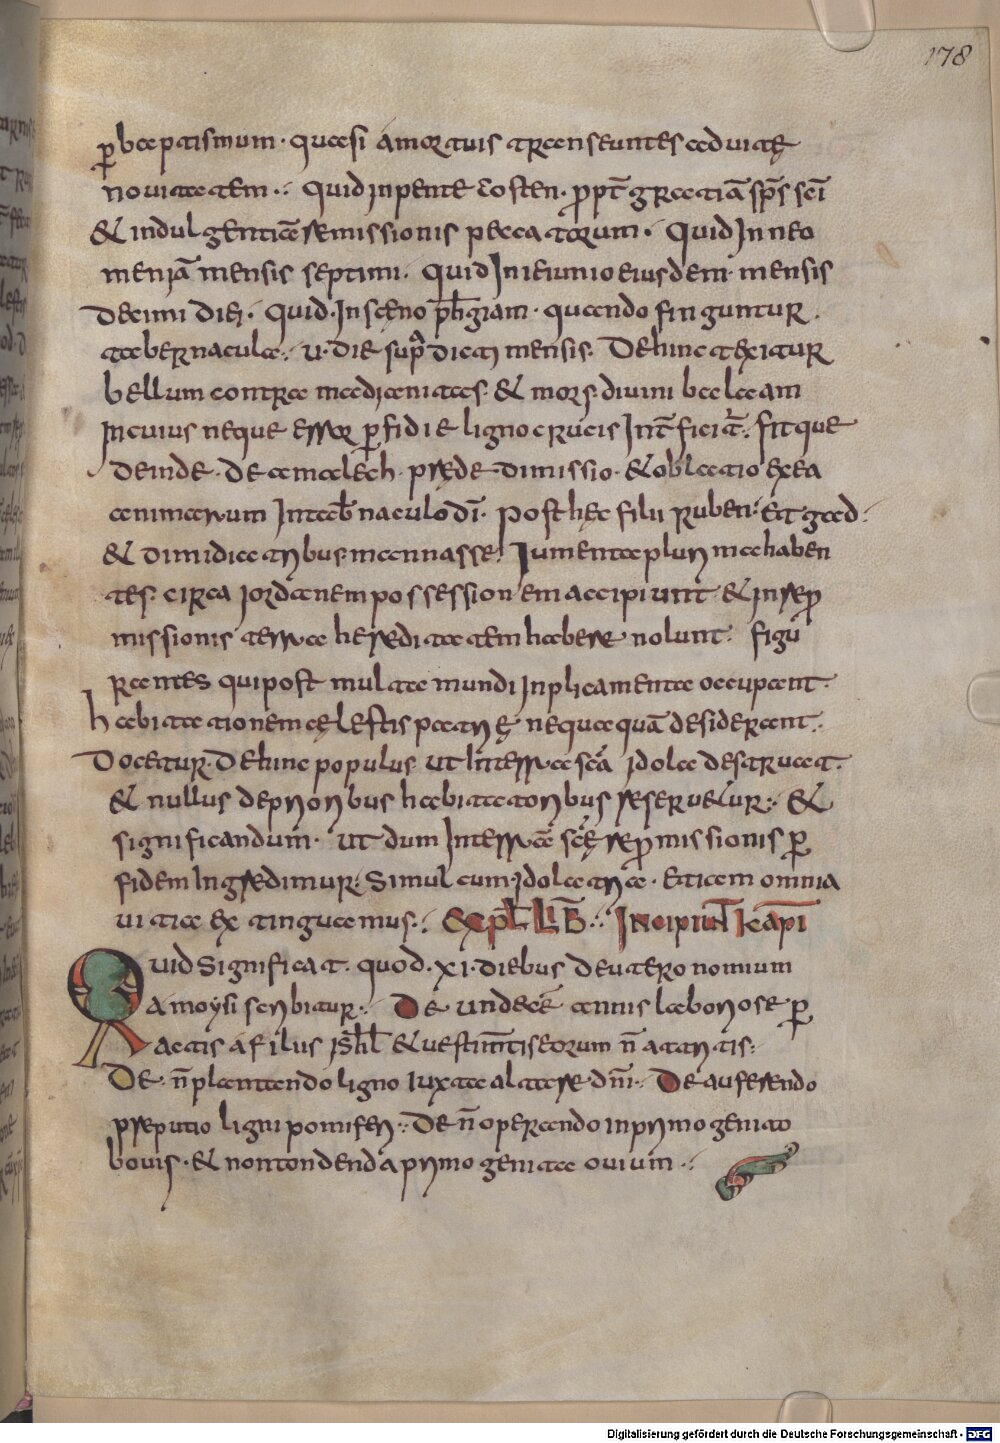 178
ꝑ baptismum · quasi amortuis transeuntes ad uitę
nouitatem ·: quid inpentecosten · ꝓpt̄ gratiā sp̄s sc̄i
& indulgentiā remissionis peccatorum · quid In neo
meniā mensis septimi · quid In ieiunio eiusdem mensis
decimi diei · quid · In scęnophegiam · quando finguntur
tabernacula ·: u · die supͣdicti mensis · Dehinc texitur
bellum contra madianitas · & mors diuini balaam
In cuius neque error ꝑfidie ligno crucis Int̄ficit̄ · fitque
deinde · de amalech · prędę dimissio · & oblatio ex ea
animarum In tab̄naculo dī · post hęc filii ruben · Et gad ·
& dimidiae tribus manasse · Iumenta plurima haben
tes · circa jordanem possession em accipiunt & In reꝓ
missionis terra hereditatem habere nolunt · figu
rantes qui post multa mundi Inplicamenta occupant ·
habitationem cęlestis patrię nequaquā desiderant ·
Docetur · Dehinc populus ut In terra sc̄a idola destruat ·
& nullus de prioribus habitatoribus reseruetur ·: &
significandum · ut dum In terrā sc̄ę reꝓmissionis ꝑ
fidem Ingredimur · simul cum idolatria · Etiam omnia
uitia extinguamus ·: Expl̄ LIB̄ ·: Incipiun̄t kap̄i
Quid significat · quod · xi · diebus deuteronomium
a moysi scribitur ·: De undecē annis laboriose ꝑ
actis a filius isrl̄ & uestim̄tis eorum n̄ atritis ·
De · n̄ plantando ligno iuxta altare dn̄i ·: De auferendo
preputio ligni pomiferi ·: De n̄ operando in primogenito
bouis · & non tondenda primogenita ouium ·:
Digitalisierung gefördert durch die Deutsche Forschungsgemeinschaft - DFG